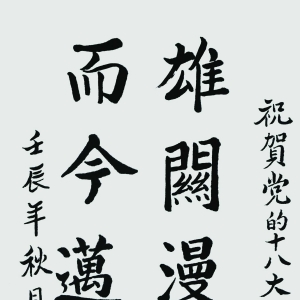 祝賀党的十八大
雄關漫
而今邁
壬辰年秋月